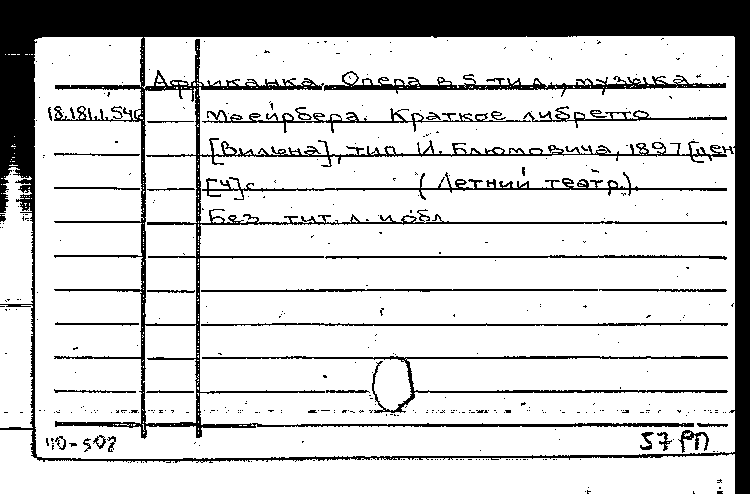 Африканка. Опера в 5-ти д., музыка
18.181.1.546 Мейербера. Краткое либретто
[Вильна], тип. И. Блюмовича, 1897 [цен
[4]с. (Летний театр).
Без тит. л. и обл.
40-508 57 РП